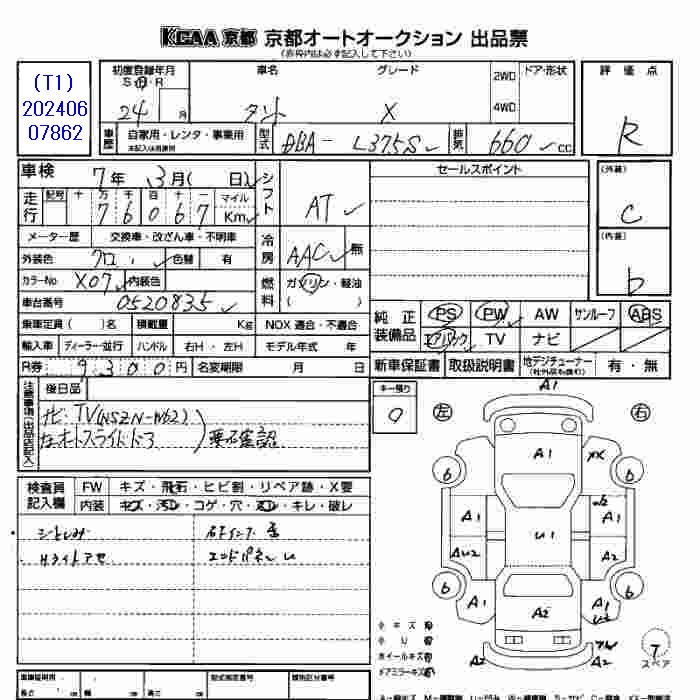 KCAA 京都 京都オートオークション 出品票
(赤枠内は必ず記入して下さい)
(T1)
202406
07862
初度登録年月 車名 グレード ドア・形状 評価点
S・H・R 2WD
24 月 タント X 4WD R
車歴 自家用・レンタ・事業用 型式 DBA- L375S 排気 660 cc
未記入は自家用
車検 7年 3月( 日) シフト AT セールスポイント (外装)
C
走行 記号 十 万 千 百 十 一 マイル
7 6 0 6 7 Km
メーター歴 交換車・改ざん車・不明車 冷房 AAC 無 (内装)
外装色 クロ 色替 有 b
カラーNo X07 内装色 燃料 ガソリン・軽油
車台番号 0520835 ( )
純正装備品 PS PW AW サンルーフ ABS
乗車定員( )名 積載量 Kg NOX 適合・不適合
エアバック TV ナビ
輸入車 ディーラー・並行 ハンドル 右H・左H モデル年式 年
新車保証書 取扱説明書 地デジチューナー 有・無
R券 9300円 名変期限 月 日
注意事項(出品店記入) 後日品 キー預り
0 左 右
TV(NSZN-W62)
左オートスライドドア 要確認
検査員記入欄 FW キズ・飛石・ヒビ割・リペア跡・X要
内装 キズ・汚レ・コゲ・穴・スレ・キレ・破レ
Hライトアセ エンドパネル U
A1
A1 XX
6 6
A1 A1
AU2 U1 A2
6 6
A1 A2 A1
U2
A2 A2
7
スペア
小キズ 有
小U 有
ホイールキズ 有
ドアミラーキズ 有
長さ 幅 高さ 型式指定番号 類別区分番号